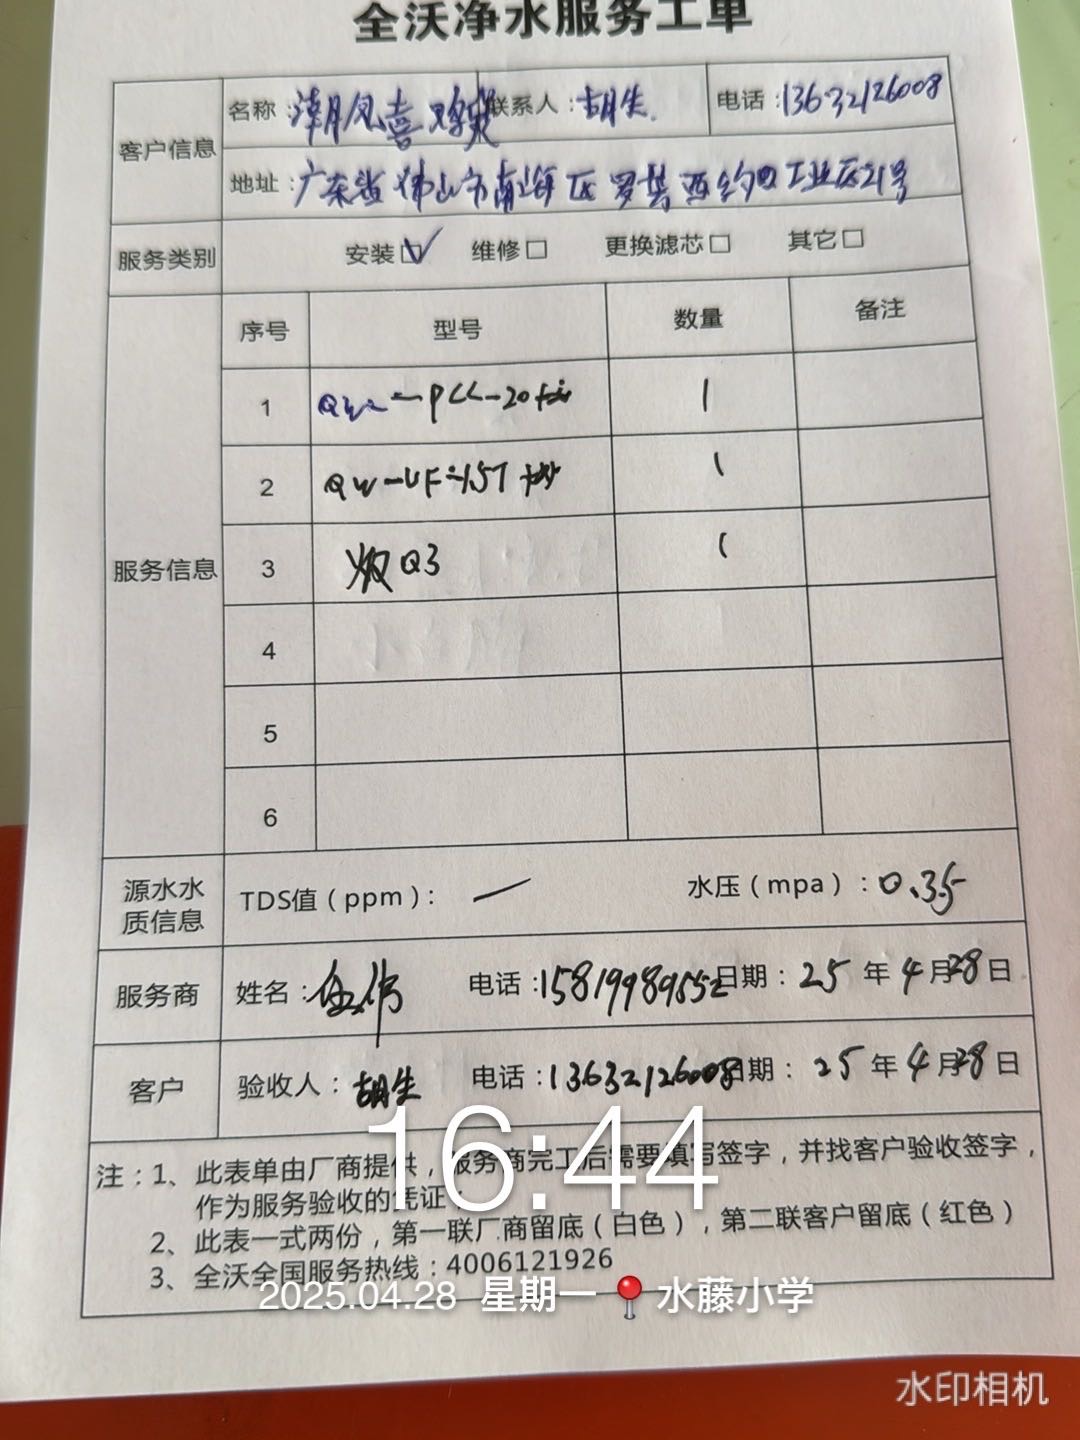 全沃净水服务工单
客户信息
名称：潮凤喜 联系人：胡生 电话：13632126008
地址：广东省佛山市南海区罗 西约 工业区21号
服务类别 安装☑ 维修□ 更换滤芯□ 其它□
服务信息
序号 型号 数量 备注
1 1
2 QW-UF-15T 1
3 Q3 1
4
5
6
源水水质信息 TDS值（ppm）：— 水压（mpa）：0.35
服务商 姓名： 电话：15819989552 日期：25年4月28日
客户 验收人：胡生 电话：13632126008 日期：25年4月28日
注：1、此表单由厂商提供，服务商完工后需要填写签字，并找客户验收签字，
作为服务验收的凭证
2、此表一式两份，第一联厂商留底（白色），第二联客户留底（红色）
3、全沃全国服务热线：4006121926
16:44
2025.04.28 星期一 水藤小学
水印相机